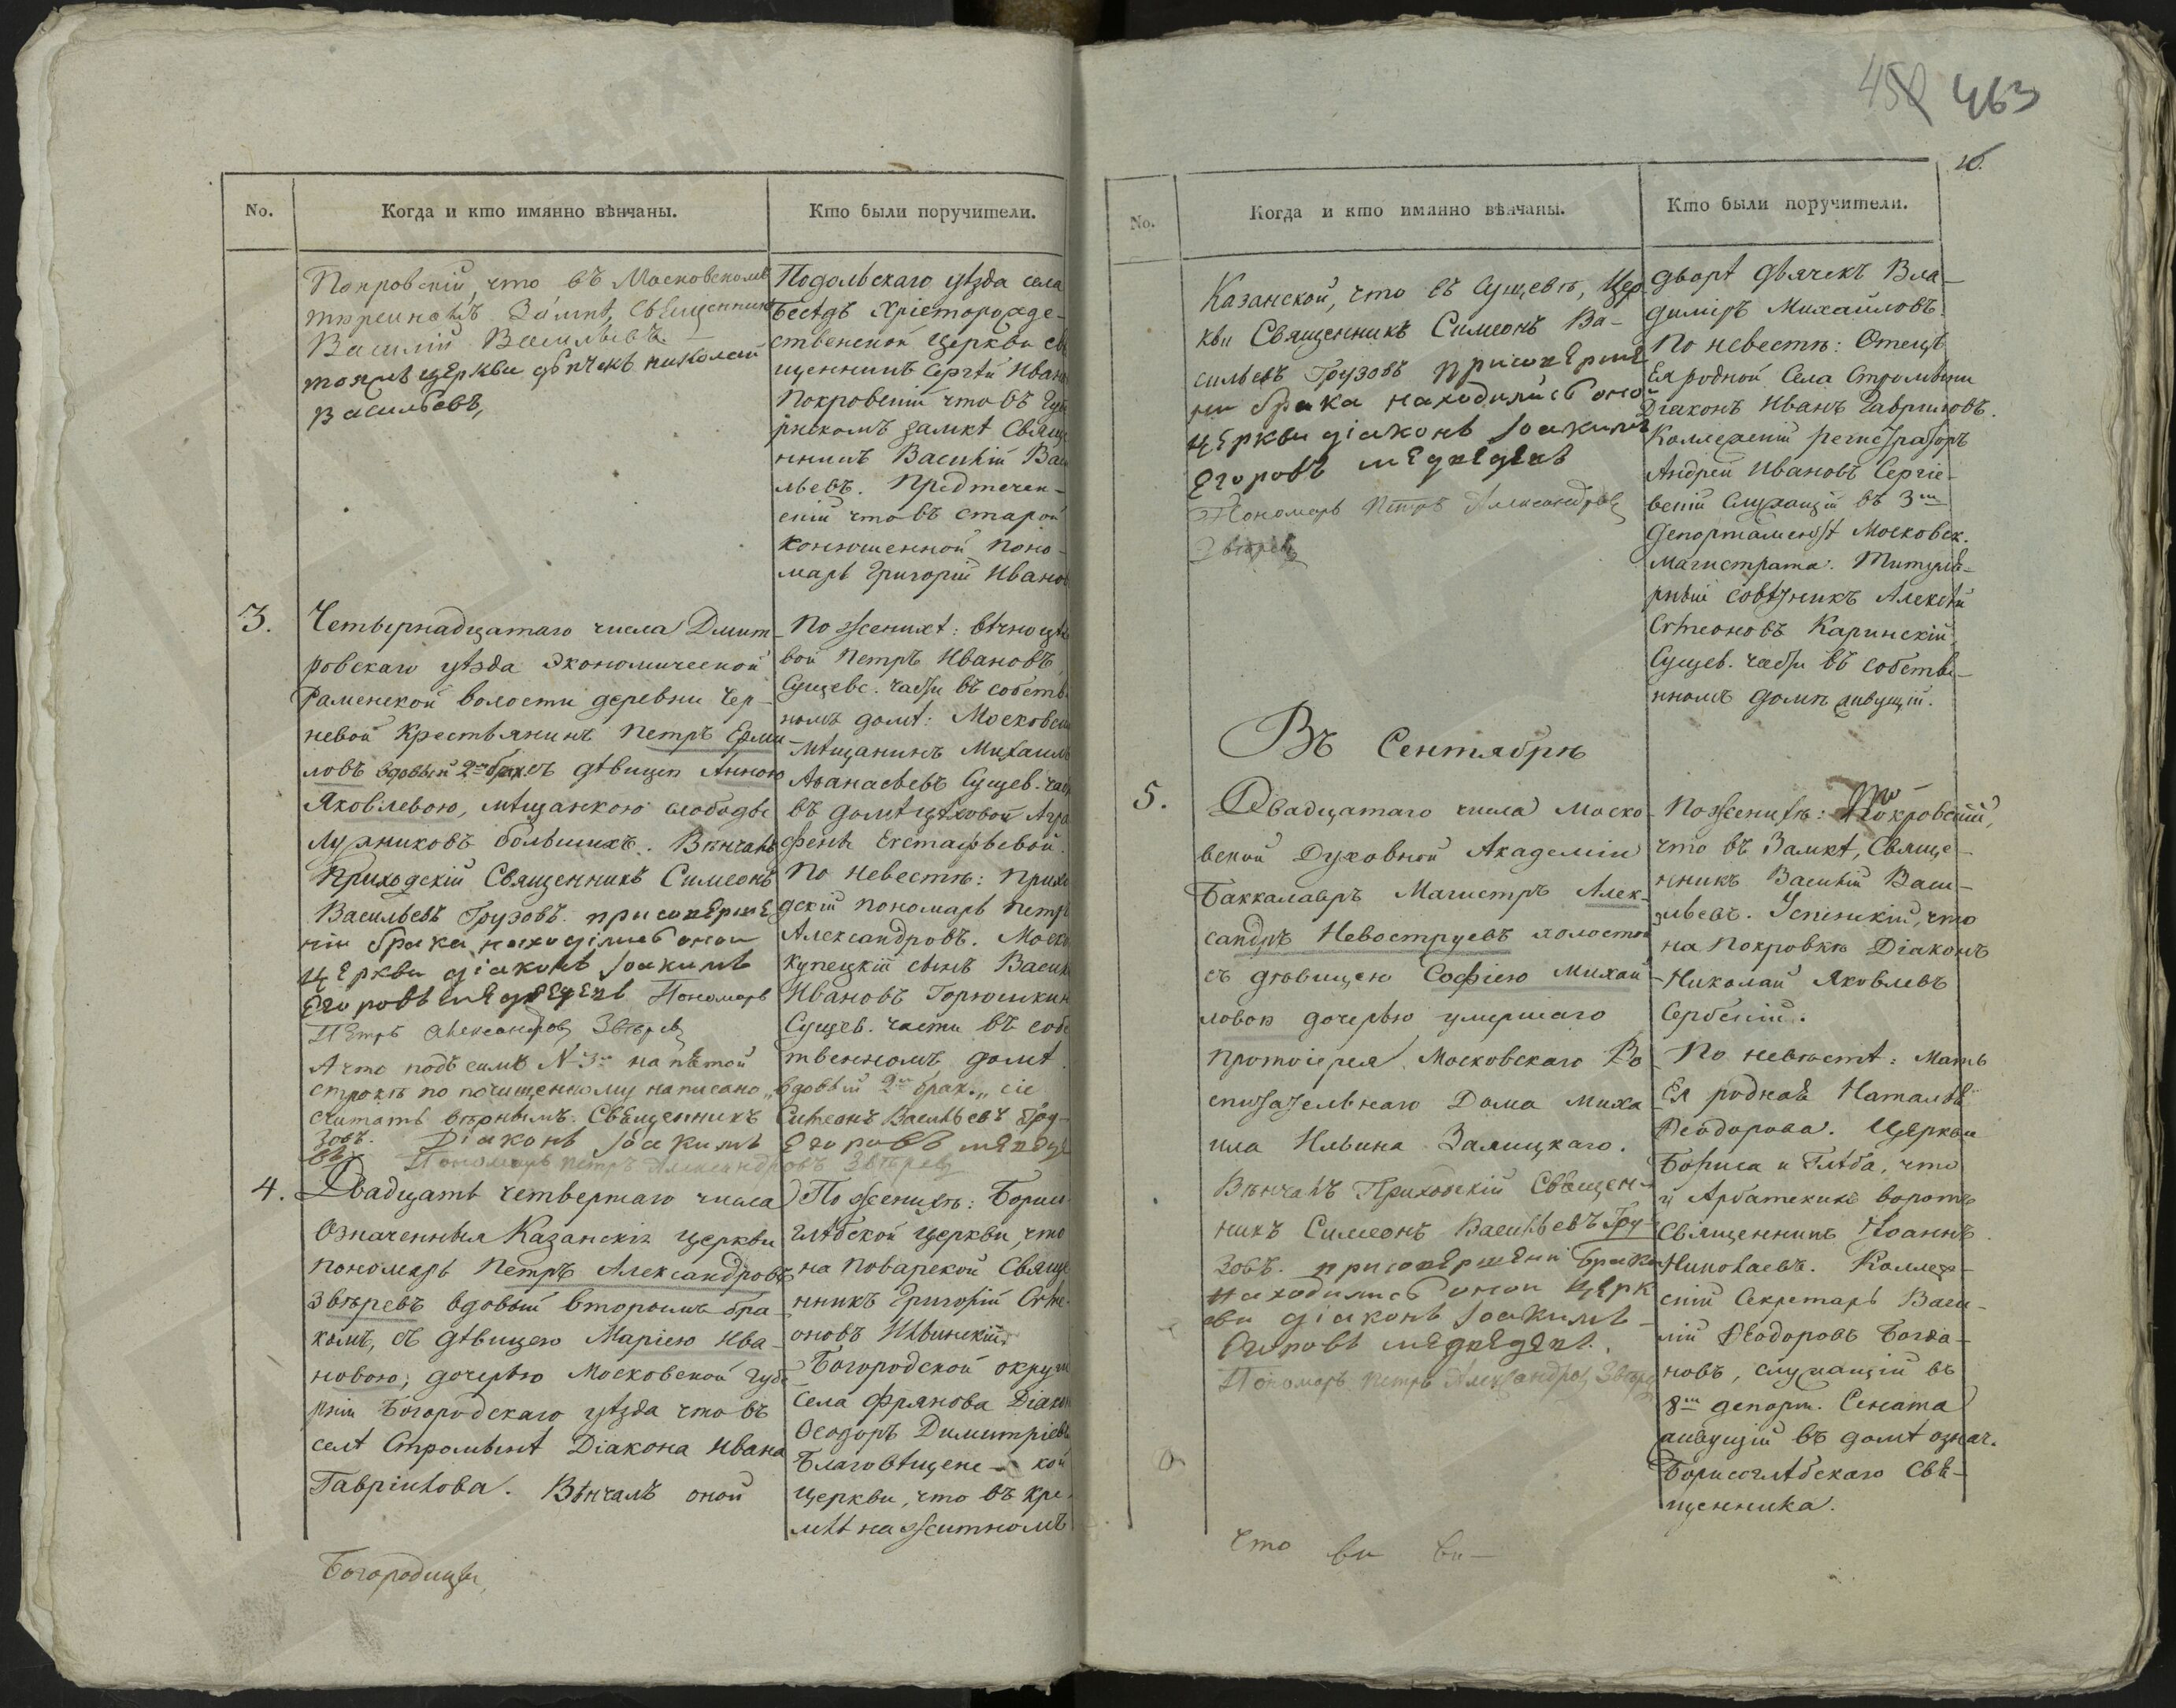 No.
Когда и кто имянно вѣнчаны.
Кто были поручители.
Покровскій, что въ Московскомъ
тюремномъ Замкѣ, Священникъ
Василій Васильевъ.
тояже церкви дьячекъ николай
васильевъ,
Подольскаго уѣзда села
Бесѣдъ Хрісторожде-
ственской церкви свя
щенникъ Сергѣй Ивано
Покровскій что въ Губе
рнскомъ замкѣ Свяще
нникъ Василій Васи
льевъ. Предтечен-
скій что въ старой
Конюшенной поно-
марь Григорій Ивано
3.
Четвернадцатаго числа Дмит
ровскаго уѣзда Экономической
Раменской волости деревни Чер-
невой Крестьянинъ Петръ Ерми
ловъ вдовый 2мъ брак. съ дѣвицею Анною
Яковлевою, мѣщанкою слободы
Лужниковъ большихъ. Вѣнчалъ
Приходскій Священникъ Симеонъ
Васильевъ Грузовъ. при соверше
ніи брака находились оной
церкви діаконъ Іоакимъ
Егоровъ медведевъ Пономарь
Петръ Александровъ Звѣревъ
По женихѣ: вѣчноцѣхо
вой Петръ Ивановъ
Сущевс. части въ собстве
номъ домѣ: Московскій
Мѣщанинъ Михаилъ
Аѳанасьевъ Сущев. час
въ домѣ цѣховой Агра
фены Евстафьевой.
По невестѣ: Прихо
дскій пономарь Петръ
Александровъ. Моско
купецкій сынъ Васил
Ивановъ Горюшкин
Сущев. части въ собс
твенномъ домѣ.
А что подъ симъ N 3мъ на пѣтой
строкѣ по почищенному написано „вдовый 2мъ брак.„ сіе
считать вѣрнымъ. Священникъ Симеонъ Васильевъ Гру-
зовъ. Діаконъ Іоакимъ Егоровъ медведе
въ. Пономарь петръ Александровъ Звѣревъ
4.
Двадцать четвертаго числа
Означенныя Казанскія церкви
пономарь Петръ Александровъ
Звѣревъ вдовый вторымъ бра-
комъ, съ дѣвицею Маріею Ива-
новою, дочерью Московской губе
рніи Богородскаго уѣзда что въ
селѣ Стромынѣ Діакона Ивана
Гаврилова. Вѣнчалъ оной
Богородицы,
По женихѣ: Борисо
глѣбской церкви, что
на Поварской Свяще
нникъ Григорій Симе-
оновъ Ильинскій.
Богородской округи
Села Фрянова Діакон
Ѳеодоръ Димитріевъ
Благовѣщенс- кой
церкви, что въ Кре-
млѣ на житномъ
463
16.
No.
Когда и кто имянно вѣнчаны.
Кто были поручители.
Казанской, что въ Сущевѣ, Цер-
кви Священникъ Симеонъ Ва-
сильевъ Грузовъ при соверше
ни брака находились оной
церкви діаконъ Іоакимъ
Егоровъ медведевъ
Пономарь Петръ Александровъ
Звѣревъ
дворѣ дьячекъ Вла-
димиръ Михайловъ.
По невестѣ: Отецъ
Ея родной Села Стромыни
Діаконъ Иванъ Гавриловъ.
Коллежскій регистраторъ
Андрей Ивановъ Сергіе-
вскій служащій въ 3мъ
Департаментѣ Московск.
магистрата. Титуля-
рный совѣтникъ Алексѣй
Симеоновъ Каринскій
Сущев. части въ собстве-
нномъ домѣ живущій.
Въ Сентябрѣ
5.
Двадцатаго числа Моско-
вской Духовной Академіи
Баккалавръ Магистръ Алек-
сандръ Невоструевъ холостой
съ дѣвицею Софіею Михай
ловою дочерью умершаго
протоіерея Московскаго Во
спитательнаго Дома Миха
ила Ильина Залицкаго.
Вѣнчалъ Приходскій Священ-
никъ Симеонъ Васильевъ Гру-
зовъ. при совершени брака
находились оной церк
ви діаконъ Іоакимъ
Егоровъ медведевъ.
Пономарь петръ Александровъ Звѣревъ
По женихѣ: Покровскій,
что въ Замкѣ, Свяще-
нникъ Василій Васи-
льевъ. Успенскій, что
на Покровкѣ Діаконъ
Николай Яковлевъ
Сербскій.
По невѣстѣ: Мать
Ея родная Наталья
Ѳеодорова. Церкви
Бориса и Глѣба, что
у Арбатскихъ воротъ
Священникъ Іоаннъ
Николаевъ. Коллеж-
скій Секретарь Васи-
лій Ѳеодоровъ Богда-
новъ, служащій въ
8мъ депорт. Сената
живущій въ домѣ означ.
Борисоглѣбскаго Свя-
щенника.